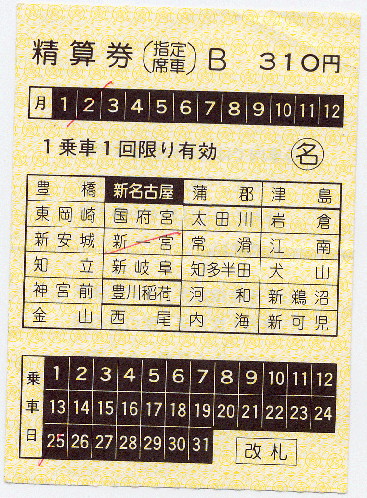 精算券(指定席車)B 310円
月 1 2 3 4 5 6 7 8 9 10 11 12
1乗車1回限り有効 名
豊橋 新名古屋 蒲郡 津島
東岡崎 国府宮 太田川 岩倉
新安城 新一宮 常滑 江南
知立 新岐阜 知多半田 犬山
神宮前 豊川稲荷 河和 新鵜沼
金山 西尾 内海 新可児
乗車日
1 2 3 4 5 6 7 8 9 10 11 12
13 14 15 16 17 18 19 20 21 22 23 24
25 26 27 28 29 30 31
改札